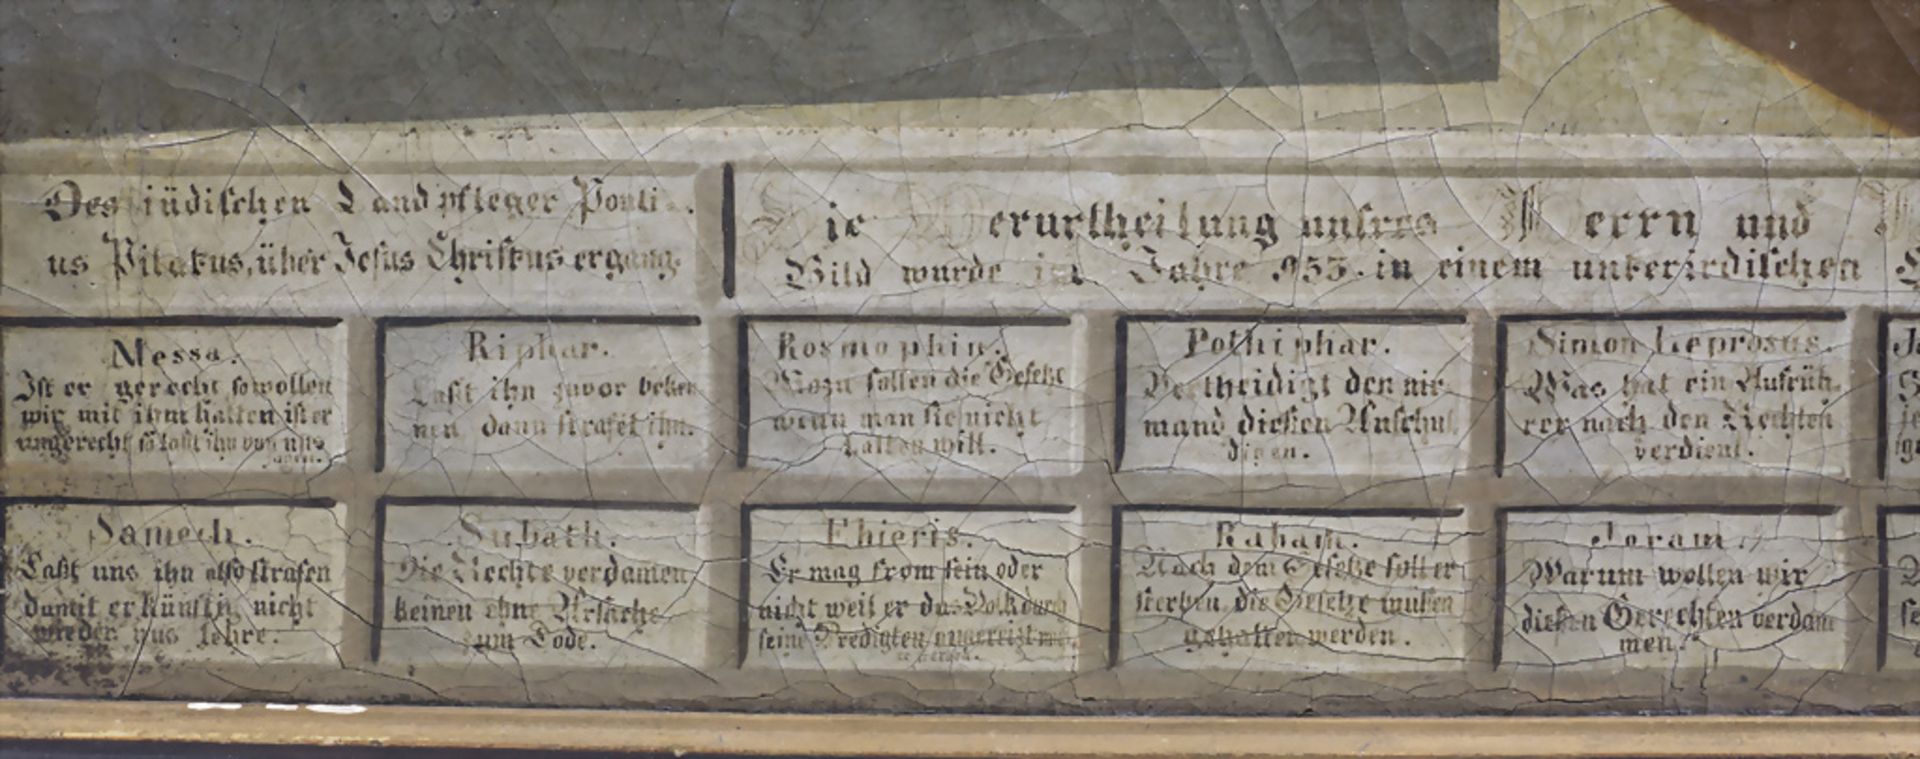 Des jüdischen Landpfleger Ponti
us Pilatus, über Jesus Christus ergang.
Die Verurtheilung unsres Herrn und
Bild wurde im Jahre 953. in einem unterirdischen
Messa.
Ist er gerecht so wollen
wir mit ihm halten ist er
ungerecht so laßt ihn von uns
jagen.
Riphar.
Laßt ihn zuvor beken
nen, dann strafet ihn.
Rosmophin.
Wozu sollen die Gesetze
wenn man sie nicht
halten will.
Pothiphar.
Vertheidigt den nie
mand diesen Unschul
digen.
Simon Leprosus.
Was hat ein Aufrüh
rer nach den Rechten
verdient.
Samech.
Laßt uns ihn also strafen
damit er künftig nicht
wieder uns lehre.
Subath.
Die Rechte verdamen
keinen ohne Ursache
zum Tode.
Ehieris.
Er mag from sein oder
nicht weil er das Volk durch
seine Predigten
Rabam.
Nach dem Gesetze soll er
sterben, die Gesetze müßen
gehalten werden.
Joram.
Warum wollen wir
diesen Gerechten verdam
men.